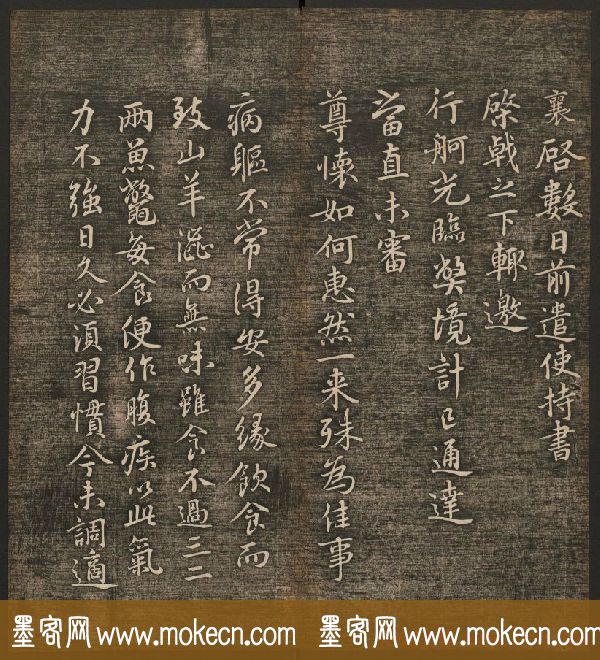 襄啓數日前遣使持書
棨戟之下輙邀
行舸光臨弊境計已通達
當直未審
尊懷如何惠然一来殊為佳事
病軀不常得安多緣飲食而
致山羊澀而無味雖食不過三二
兩魚鼈每食便作腹疾以此氣
力不強日久必須習慣今未調適
墨客网 www.mokecn.com 墨客网 www.mokecn.com